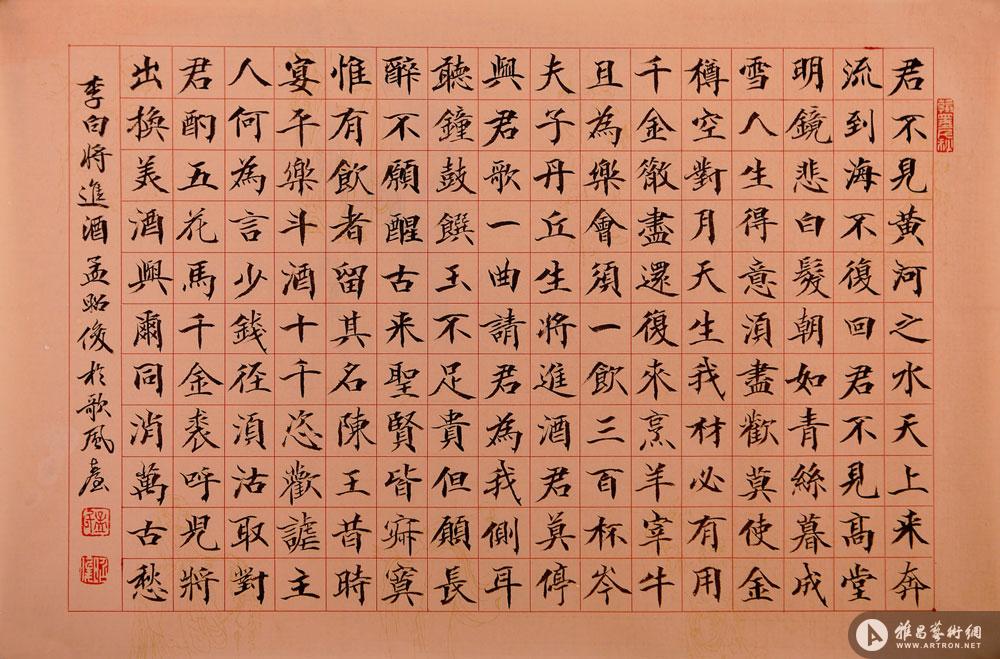 君不見黃河之水天上来奔
流到海不復回君不見高堂
明鏡悲白髮朝如青絲暮成
雪人生得意須盡歡莫使金
樽空對月天生我材必有用
千金散盡還復來烹羊宰牛
且為樂會須一飲三百杯岑
夫子丹丘生將進酒君莫停
與君歌一曲請君為我側耳
聽鐘鼓饌玉不足貴但願長
醉不願醒古来聖賢皆寂寞
惟有飲者留其名陳王昔時
宴平樂斗酒十千恣歡謔主
人何為言少錢徑須沽取對
君酌五花馬千金裘呼兒將
出換美酒與爾同消萬古愁
李白将進酒孟昭俊於歌風臺
雅昌藝術網
WWW.ARTRON.NET